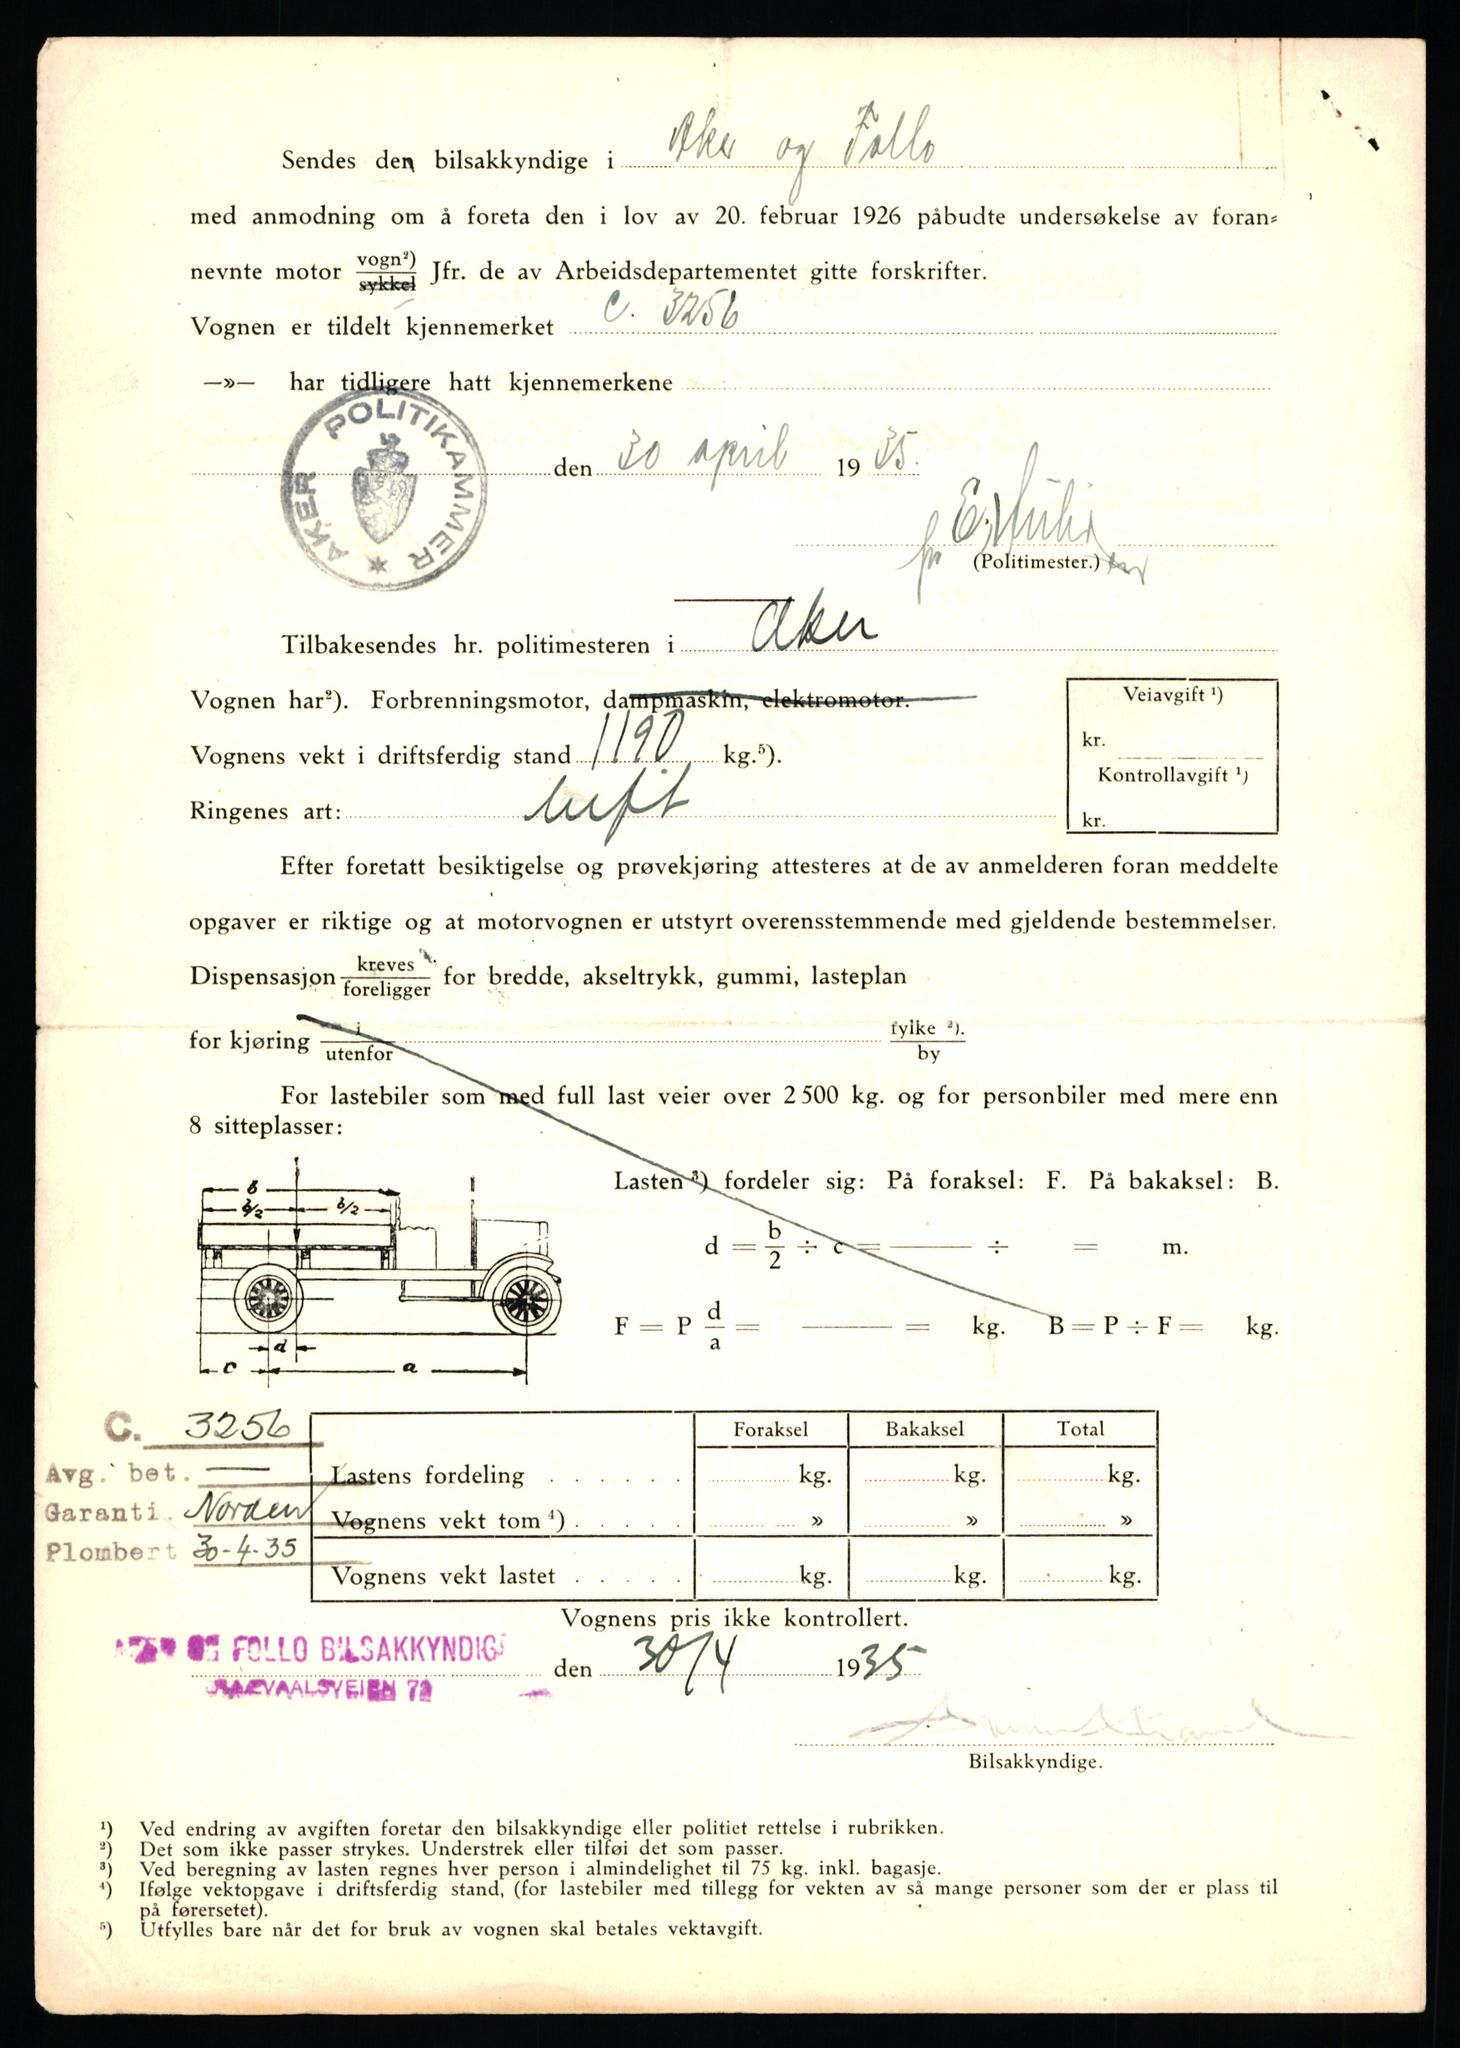 Sendes den bilsakkyndige i Aker og Follo
med anmodning om å foreta den i lov av 20. februar 1926 påbudte undersøkelse av foran=
nevnte motor vogn²) sykkel Jfr. de av Arbeidsdepartementet gitte forskrifter.
Vognen er tildelt kjennemerket C. 3256
—»— har tidligere hatt kjennemerkene
AKER POLITIKAMMER
den 30 april 1935.
(Politimester.)
Tilbakesendes hr. politimesteren i Aker
Vognen har²). Forbrenningsmotor, dampmaskin, elektromotor.
Vognens vekt i driftsferdig stand 1190 kg.⁵).
Ringenes art: luft
Veiavgift ¹)
kr.
Kontrollavgift ¹)
kr.
Efter foretatt besiktigelse og prøvekjøring attesteres at de av anmelderen foran meddelte
opgaver er riktige og at motorvognen er utstyrt overensstemmende med gjeldende bestemmelser.
Dispensasjon kreves foreligger for bredde, akseltrykk, gummi, lasteplan
for kjøring i utenfor fylke ²). by
For lastebiler som med full last veier over 2 500 kg. og for personbiler med mere enn
8 sitteplasser:
B
b/2 b/2
d
c a
Lasten ³) fordeler sig: På foraksel: F. På bakaksel: B.
d = b/2 ÷ c = ——— ÷ = m.
F = P d/a = ——— = kg. B = P ÷ F = kg.
C. 3256
Avg. bet. —
Garanti. Norden
Plombert 30-4-35
Foraksel Bakaksel Total
Lastens fordeling . . . . . . kg. kg. kg.
Vognens vekt tom ⁴) . . . . . » » »
Vognens vekt lastet . . . . . kg. kg. kg.
Vognens pris ikke kontrollert.
FOLLO BILSAKKYNDIG
den 30/4 1935
Bilsakkyndige.
¹) Ved endring av avgiften foretar den bilsakkyndige eller politiet rettelse i rubrikken.
²) Det som ikke passer strykes. Understrek eller tilføi det som passer.
³) Ved beregning av lasten regnes hver person i almindelighet til 75 kg. inkl. bagasje.
⁴) Ifølge vektopgave i driftsferdig stand, (for lastebiler med tillegg for vekten av så mange personer som der er plass til
på førersetet).
⁵) Utfylles bare når det for bruk av vognen skal betales vektavgift.